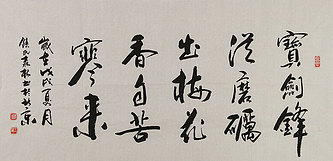 寶劍鋒
從磨礪
出梅花
香自苦
寒來
歲在戊戌夏月